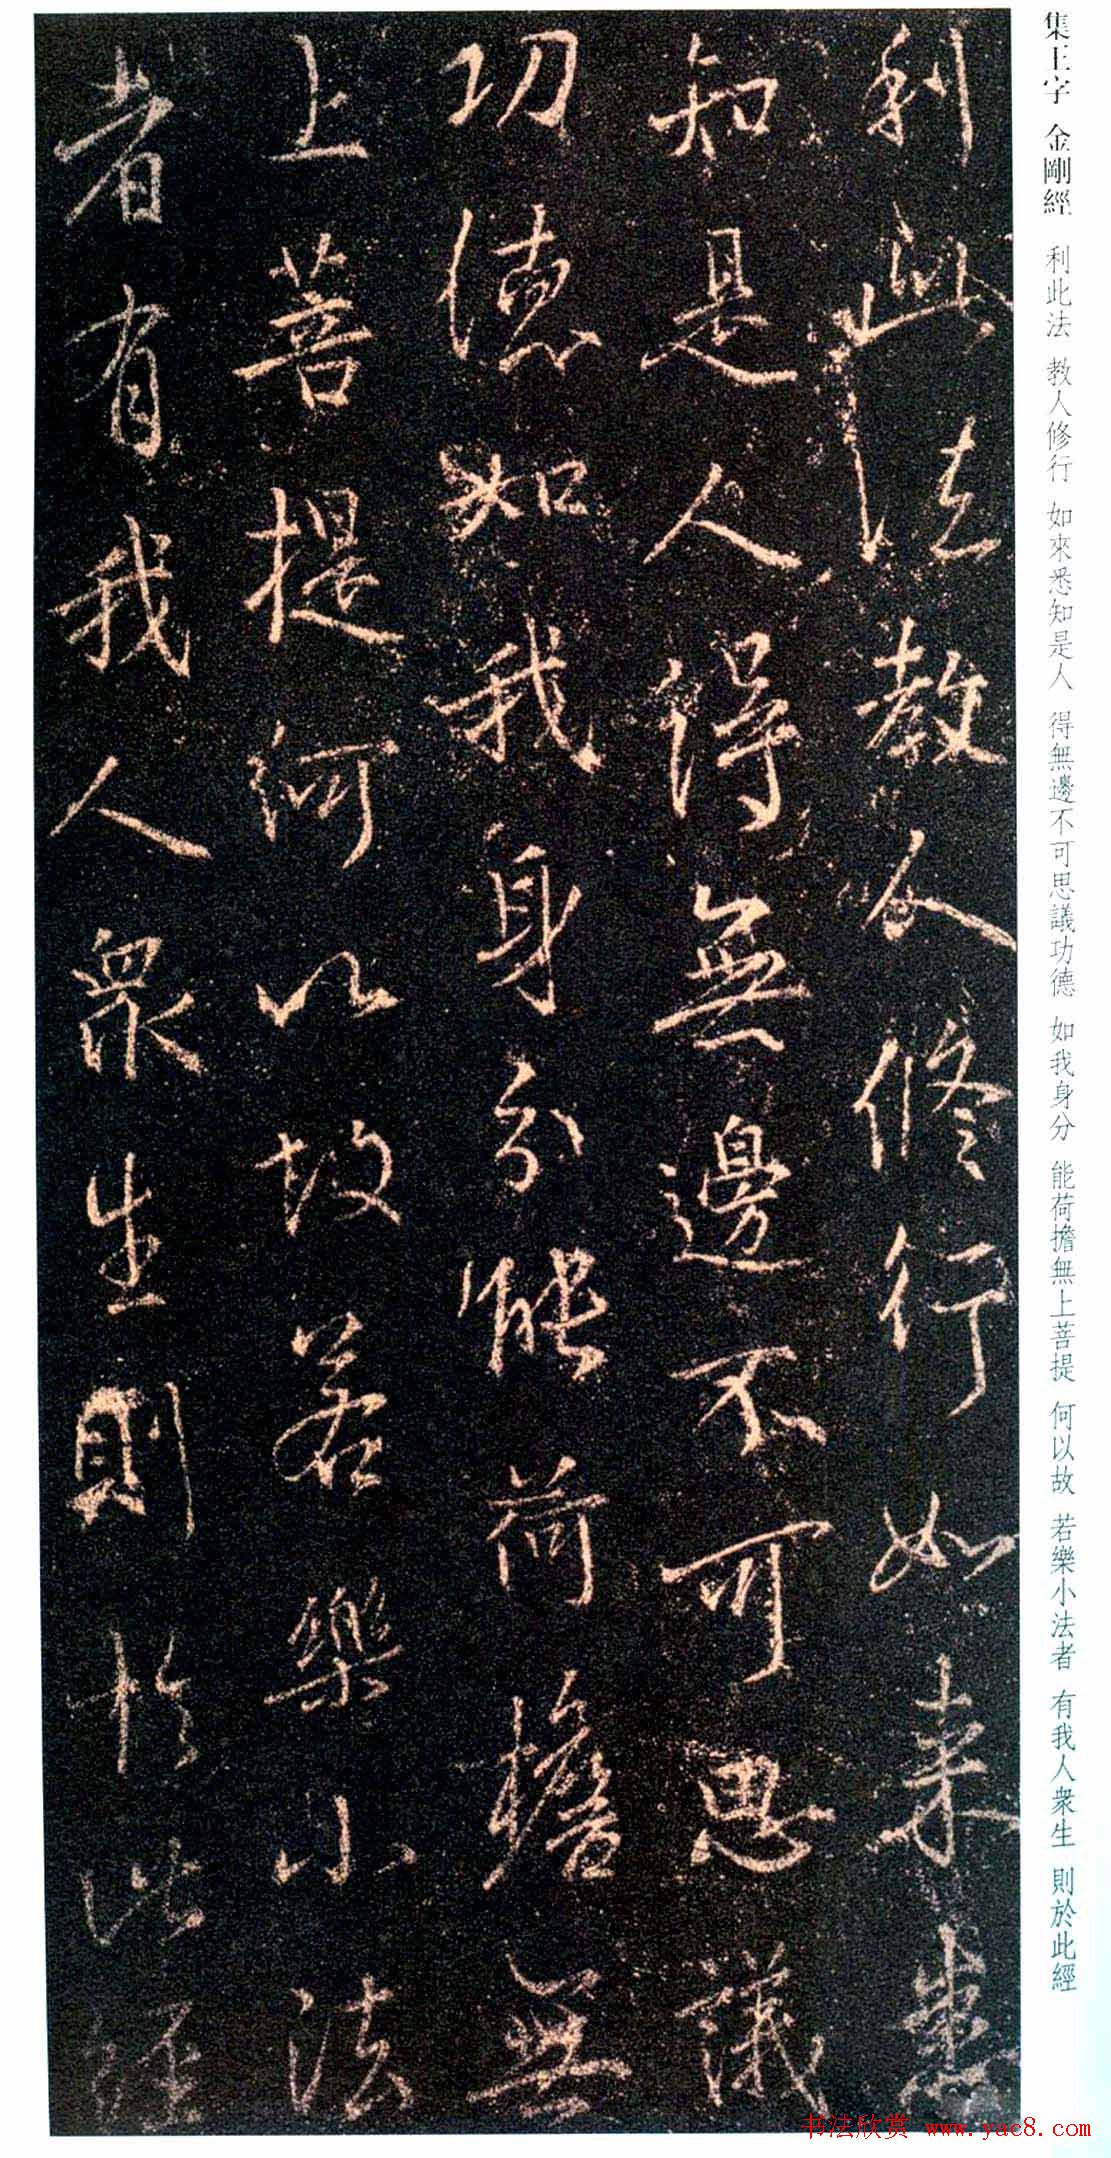 集王字 金剛經 利此法 教人修行 如來悉知是人 得無邊不可思議功德 如我身分 能荷擔無上菩提 何以故 若樂小法者 有我人衆生 則於此經
利此法教人修行如来悉
知是人得無邊不可思議
功德如我身分能荷擔無
上菩提何以故若樂小法
者有我人衆生則於此經
书法欣赏 www.yac8.com